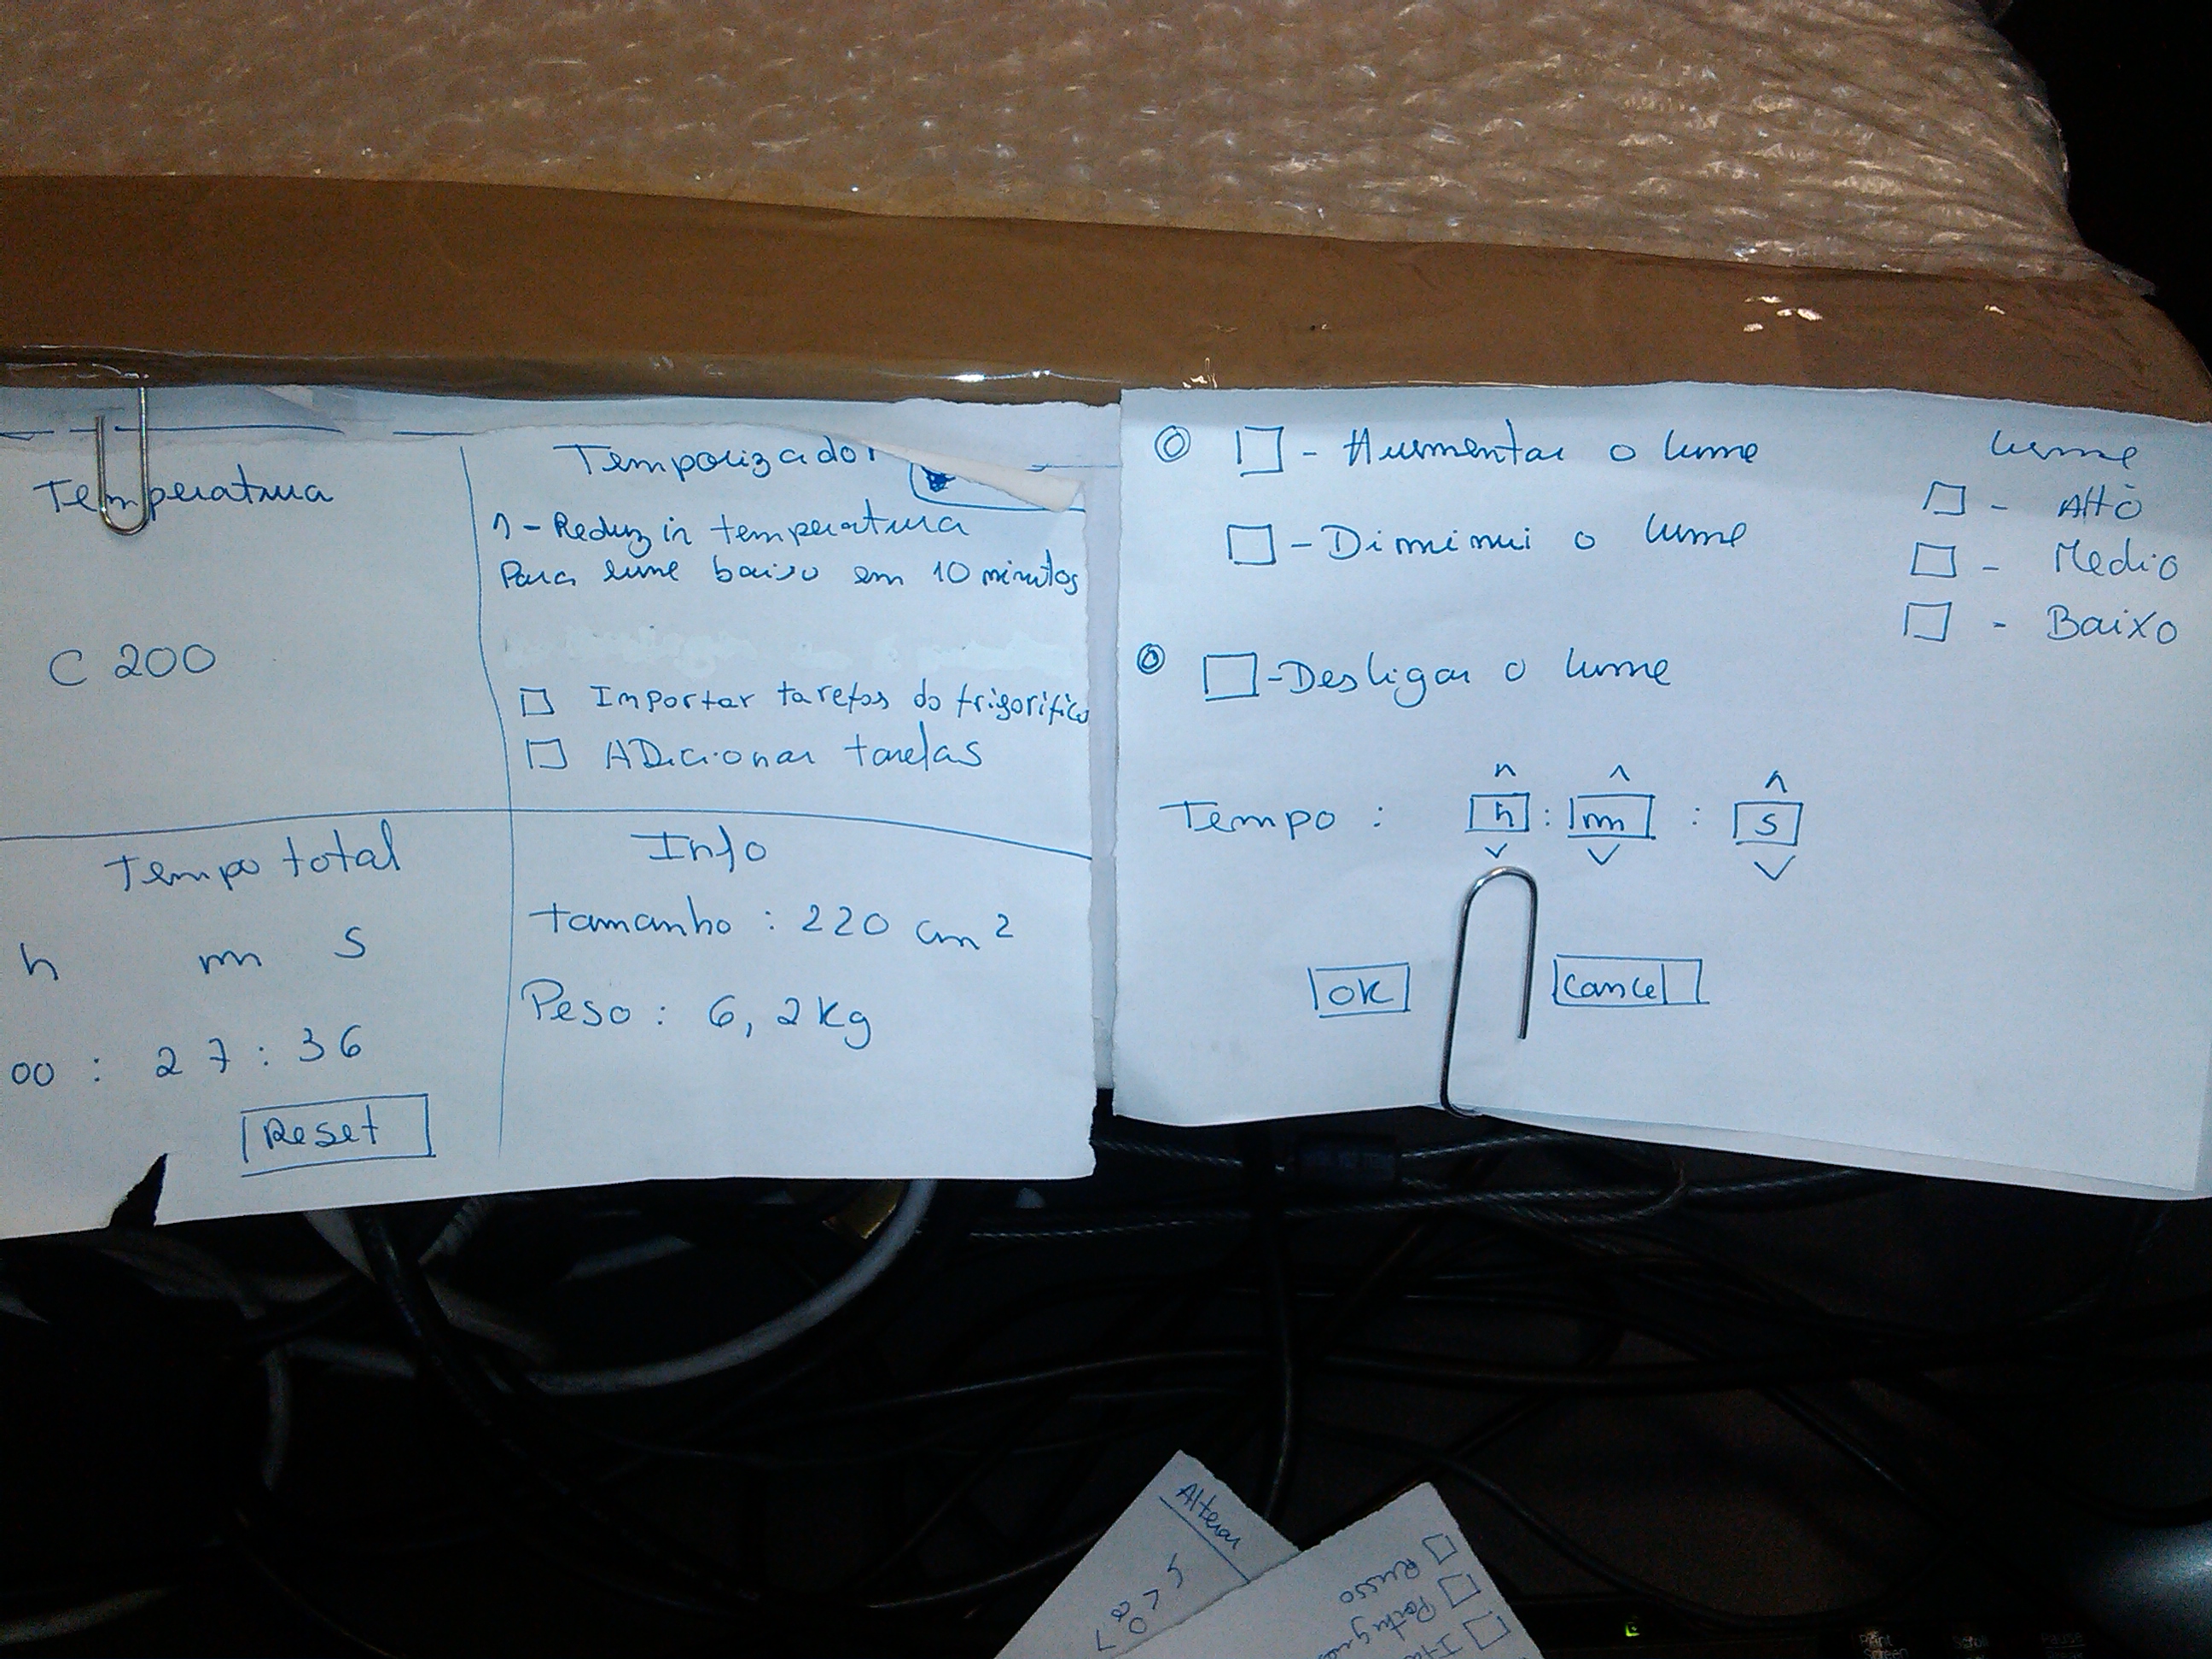 Temperatura
C 200
Temporizador
1 - Reduzir temperatura
Para lume baixo em 10 minutos
Importar tarefas do frigorifico
ADicionar tarefas
Tempo total
h m s
00 : 27 : 36
Reset
Info
tamanho : 220 cm²
Peso : 6,2 kg
- Aumentar o lume
- Diminui o lume
- Desligar o lume
lume
- Alto
- Medio
- Baixo
Tempo : h : m : s
OK Cancel
Alterar
Russo
Print
Screen
Scroll
Pause